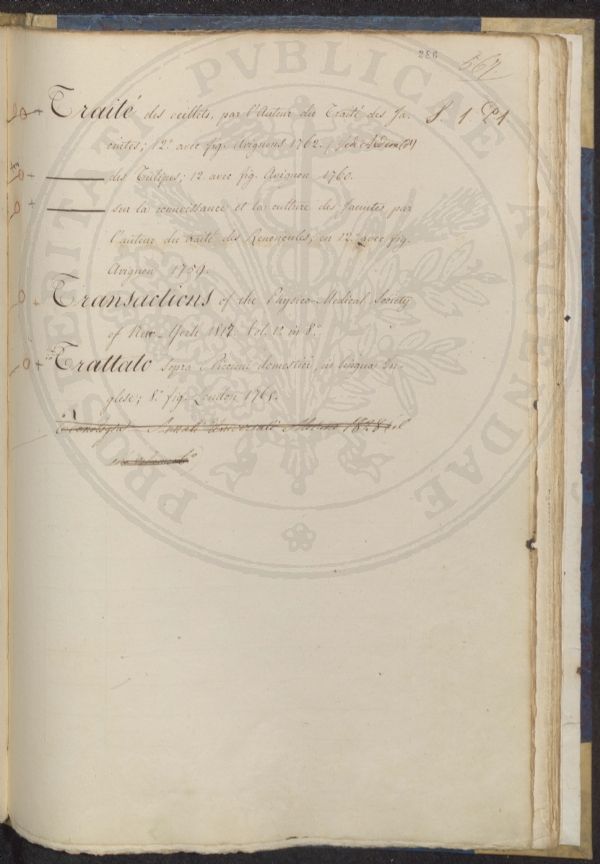 286 567.
Traité des œillets, par l'Auteur du Traité des Ja- S. 1 P. 1
cintes; 12.° avec fig. Avignon 1762.
——— des Tulipes; 12 avec fig. Avignon 1760.
——— sur la connoissance et la culture des Jacintes par
l'auteur du traité des Renoncules, en 12.° avec fig.
Avignon 1759.
Transactions of the Physico-Medical Society
of New-York 1817. Vol. 1.° in 8.°
Trattato sopra i Piccioni domestici, in lingua In-
glese; 8.° fig. London 1765.
Annali Universali 1828
PROSPERITATI PVBLICAE AVGENDAE